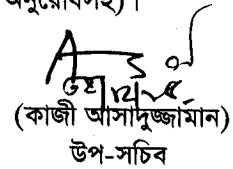 অনুরোধসহ)।
(কাজী আসাদুজ্জামান)
উপ-সচিব